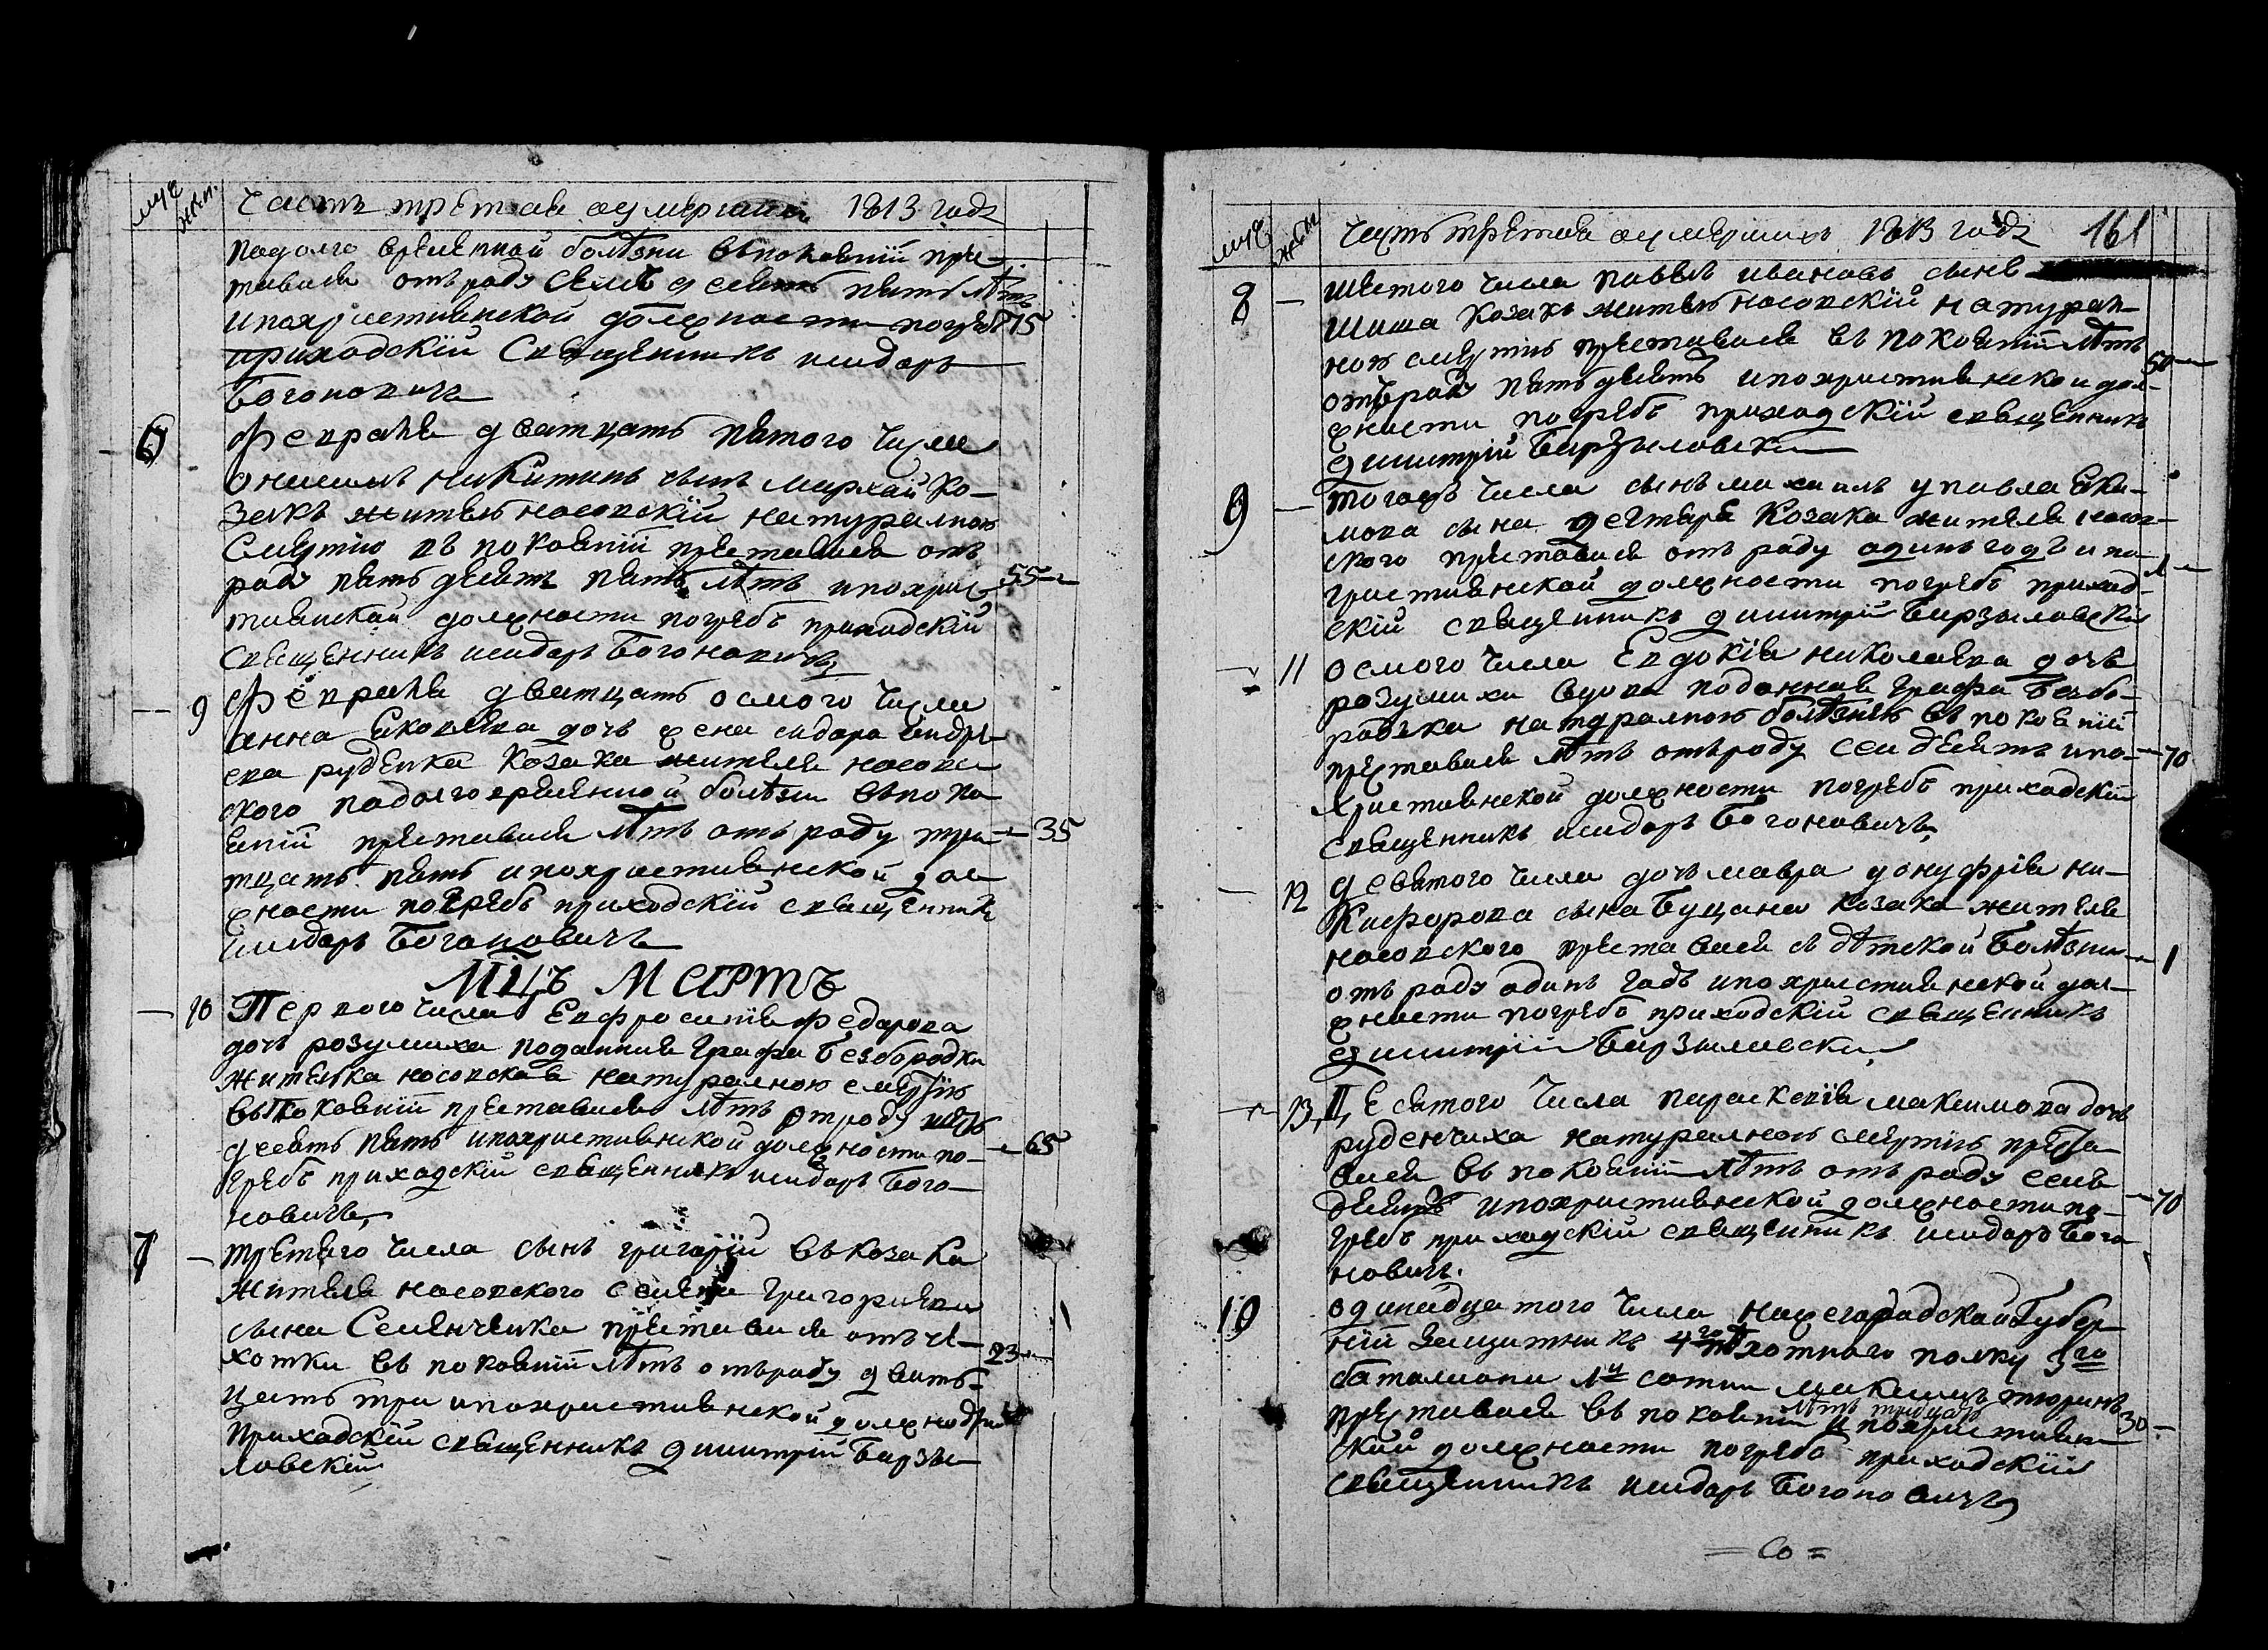 муч
жен.
Часть третая о умершихъ 1813 года
подолго временной болѣзни въ покаянїи пре-
тавися отъ роду семъ десятъ пять лѣтъ
и по християнской должности погребъ 75
приходскїй Священникъ исидоръ
Богоновичъ
6 Февраля дватцать пятого числа
онисимъ Никитинъ сынъ козакъ
жителъ носовскїй натуралною
Смертїю въ покаянїи преставися отъ
роду пять десятъ пять лѣтъ и по хрис- 55
тиянской должности погребъ приходскїй
Священникъ исидоръ Богоновичъ
9 Февраля дватцать осмого числа
анна Яковлева дочь жена сидора андре-
ева руденка козака жителя носов
ского подолговременной болѣзни въ пока
янїи преставися лѣтъ отъ роду три- 35
тцать пять и по християнской дол
жности погребъ приходскїй священникъ
исидоръ Богоновичъ
Мцъ Мартъ
10 Первого числа Евфросинїя федорова
дочь розумиха поданная Графа Безбородка
жителка носовская натуралною смертїю
въ покаянїи преставися лѣтъ отроду шесть
десятъ пять и по християнской должности по- 65
гребъ приходскїй священникъ исидоръ Бого-
новичъ
7 третего числа сынъ григорїй въ козака
жителя носовского семена Григориева
сына Семенченка преставися отъ че-
хотки въ покаянїи лѣтъ отъ роду двать- 23
цать три и по християнской должно
Приходскїй священникъ димитрїй Бирзи
ловскїй
муч
жен
161
Часть третая о умершихъ 1813 года
8 шестого числа павелъ ивановъ сынъ
Шиша козакъ жителъ носовскїй натурал-
ною смертїю преставися въ покаянїи лѣтъ
отъ роду пять десятъ и по християнской дол- 50
жности погребъ приходскїй священникъ
димитрїй Бирзиловски
9 тогожъ числа сынъ михаилъ у павла
сына дегтяра козака жителя носов-
ского преставися отъ роду одинъ годъ и по 1
християнской должности погребъ приход-
скїй священникъ димитрїй Бирзиловскїй
11 осмого числа Евдокїя николаева дочь
розумиха вдова поданная Графа Безбо-
родка натуралною болѣзнїю въ покаянїи
преставися лѣтъ отъ роду семдесятъ и по- 70
християнской должности погребъ приходскїй
священникъ исидоръ Богоновичъ
12 девятого числа дочь мавра у онуфрїя ни-
кифорова сына Буцана козака жителя
носовского преставися въ дѣтской болѣзни 1
отъ роду одинъ годъ и по християнской дол-
жности погребъ приходскїй священникъ
димитрїй Бирзиловски
13 Десятого числа параскевїя максимова дочь
руденчиха натуралною смертїю преста
вися въ покаянїи лѣтъ отъ роду семъ
десятъ и по християнской должности по- 70
гребъ приходскїй священникъ исидоръ Бого
новичъ.
10 одинадцатого числа Нижегородской Губер
нїи защитникъ 4го пѣхотного полку 3го
баталиона 1й сотни Максимъ тюринъ
преставися въ покаянїи лѣтъ тридцать и по християн 30
ской должности погребъ приходскїй
священникъ исидоръ Богоновичъ
= Со =